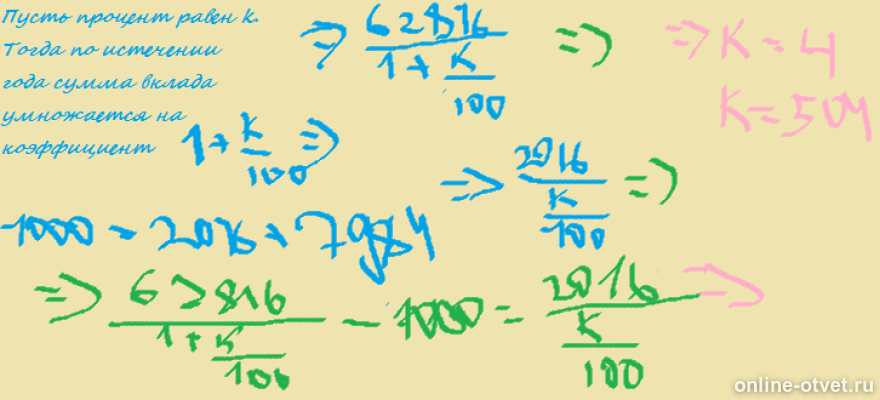 Пусть процент равен k.
Тогда по истечении
года сумма вклада
умножается на
коэффициент 1+k/100 =>
=> 62816/(1+k/100) =>
-1000 - 2016 + 7984
=> 2016/(k/100) =>
=> 62816/(1+k/100) - 1000 = 2016/(k/100) =>
=> k=4
k=504
online-otvet.ru